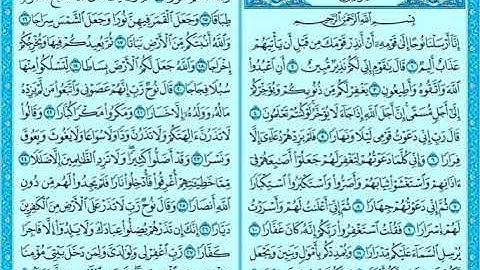 بِسْمِ اللَّهِ الرَّحْمَٰنِ الرَّحِيمِ
إِنَّا أَرْسَلْنَا نُوحًا إِلَىٰ قَوْمِهِ أَنْ أَنذِرْ قَوْمَكَ مِن قَبْلِ أَن يَأْتِيَهُمْ
عَذَابٌ أَلِيمٌ ١ قَالَ يَٰقَوْمِ إِنِّي لَكُمْ نَذِيرٌ مُّبِينٌ ٢ أَنِ اعْبُدُوا
اللَّهَ وَاتَّقُوهُ وَأَطِيعُونِ ٣ يَغْفِرْ لَكُم مِّن ذُنُوبِكُمْ وَيُؤَخِّرْكُمْ
إِلَىٰ أَجَلٍ مُّسَمًّى إِنَّ أَجَلَ اللَّهِ إِذَا جَاءَ لَا يُؤَخَّرُ لَوْ كُنتُمْ تَعْلَمُونَ ٤
قَالَ رَبِّ إِنِّي دَعَوْتُ قَوْمِي لَيْلًا وَنَهَارًا ٥ فَلَمْ يَزِدْهُمْ دُعَاءِي إِلَّا
فِرَارًا ٦ وَإِنِّي كُلَّمَا دَعَوْتُهُمْ لِتَغْفِرَ لَهُمْ جَعَلُوا أَصَٰبِعَهُمْ فِي
ءَاذَانِهِمْ وَاسْتَغْشَوْا ثِيَابَهُمْ وَأَصَرُّوا وَاسْتَكْبَرُوا اسْتِكْبَارًا
٧ ثُمَّ إِنِّي دَعَوْتُهُمْ جِهَارًا ٨ ثُمَّ إِنِّي أَعْلَنتُ لَهُمْ وَأَسْرَرْتُ
لَهُمْ إِسْرَارًا ٩ فَقُلْتُ اسْتَغْفِرُوا رَبَّكُمْ إِنَّهُ كَانَ غَفَّارًا ١٠
يُرْسِلِ السَّمَاءَ عَلَيْكُم مِّدْرَارًا ١١ وَيُمْدِدْكُم بِأَمْوَالٍ وَبَنِينَ وَيَجْعَل
طِبَاقًا ١٥ وَجَعَلَ الْقَمَرَ فِيهِنَّ نُورًا وَجَعَلَ الشَّمْسَ سِرَاجًا ١٦
وَاللَّهُ أَنبَتَكُم مِّنَ الْأَرْضِ نَبَاتًا ١٧ ثُمَّ يُعِيدُكُمْ فِيهَا وَيُخْرِجُكُمْ
إِخْرَاجًا ١٨ وَاللَّهُ جَعَلَ لَكُمُ الْأَرْضَ بِسَاطًا ١٩ لِّتَسْلُكُوا مِنْهَا
سُبُلًا فِجَاجًا ٢٠ قَالَ نُوحٌ رَّبِّ إِنَّهُمْ عَصَوْنِي وَاتَّبَعُوا مَن لَّمْ يَزِدْهُ
مَالُهُ وَوَلَدُهُ إِلَّا خَسَارًا ٢١ وَمَكَرُوا مَكْرًا كُبَّارًا ٢٢ وَقَالُوا
لَا تَذَرُنَّ ءَالِهَتَكُمْ وَلَا تَذَرُنَّ وَدًّا وَلَا سُوَاعًا وَلَا يَغُوثَ وَيَعُوقَ
وَنَسْرًا ٢٣ وَقَدْ أَضَلُّوا كَثِيرًا وَلَا تَزِدِ الظَّٰلِمِينَ إِلَّا ضَلَٰلًا ٢٤
مِّمَّا خَطِيٓـَٰٔتِهِمْ أُغْرِقُوا فَأُدْخِلُوا نَارًا فَلَمْ يَجِدُوا لَهُم مِّن دُونِ
اللَّهِ أَنصَارًا ٢٥ وَقَالَ نُوحٌ رَّبِّ لَا تَذَرْ عَلَى الْأَرْضِ مِنَ الْكَٰفِرِينَ
دَيَّارًا ٢٦ إِنَّكَ إِن تَذَرْهُمْ يُضِلُّوا عِبَادَكَ وَلَا يَلِدُوا إِلَّا فَاجِرًا
كَفَّارًا ٢٧ رَّبِّ اغْفِرْ لِي وَلِوَٰلِدَيَّ وَلِمَن دَخَلَ بَيْتِيَ مُؤْمِنًا